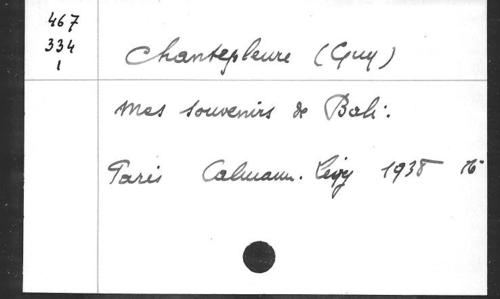 467
334
1
Chantepleure (Guy)
Mes souvenirs de Bali.
Paris Calmann. Lévy 1938 16°